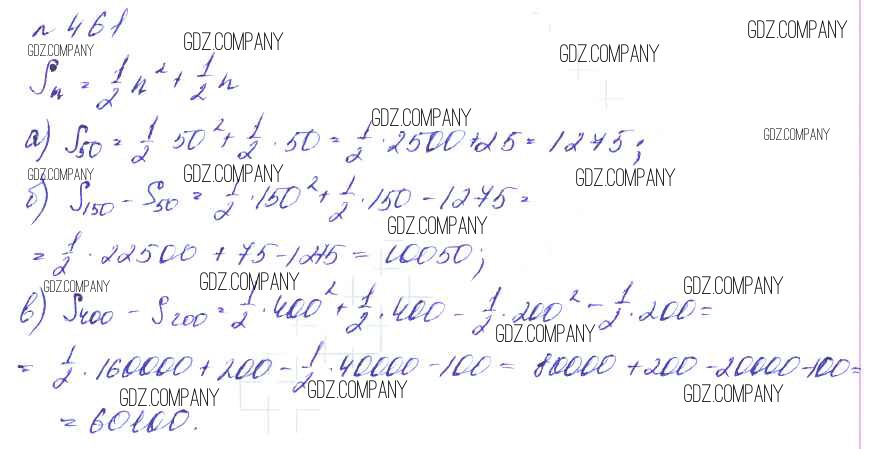 GDZ.COMPANY
№ 461
GDZ.COMPANY GDZ.COMPANY GDZ.COMPANY
Sn = 1/2 n² + 1/2 n
GDZ.COMPANY GDZ.COMPANY
а) S50 = 1/2 50² + 1/2 · 50 = 1/2 · 2500 + 25 = 1275;
GDZ.COMPANY GDZ.COMPANY GDZ.COMPANY
б) S150 - S50 = 1/2 · 150² + 1/2 · 150 - 1275 =
GDZ.COMPANY
= 1/2 · 22500 + 75 - 1275 = 10050;
GDZ.COMPANY GDZ.COMPANY GDZ.COMPANY
в) S400 - S200 = 1/2 · 400² + 1/2 · 400 - 1/2 · 200² - 1/2 · 200 =
GDZ.COMPANY
= 1/2 · 160000 + 200 - 1/2 · 40000 - 100 = 80000 + 200 - 20000 - 100 =
GDZ.COMPANY GDZ.COMPANY GDZ.COMPANY
= 60100.